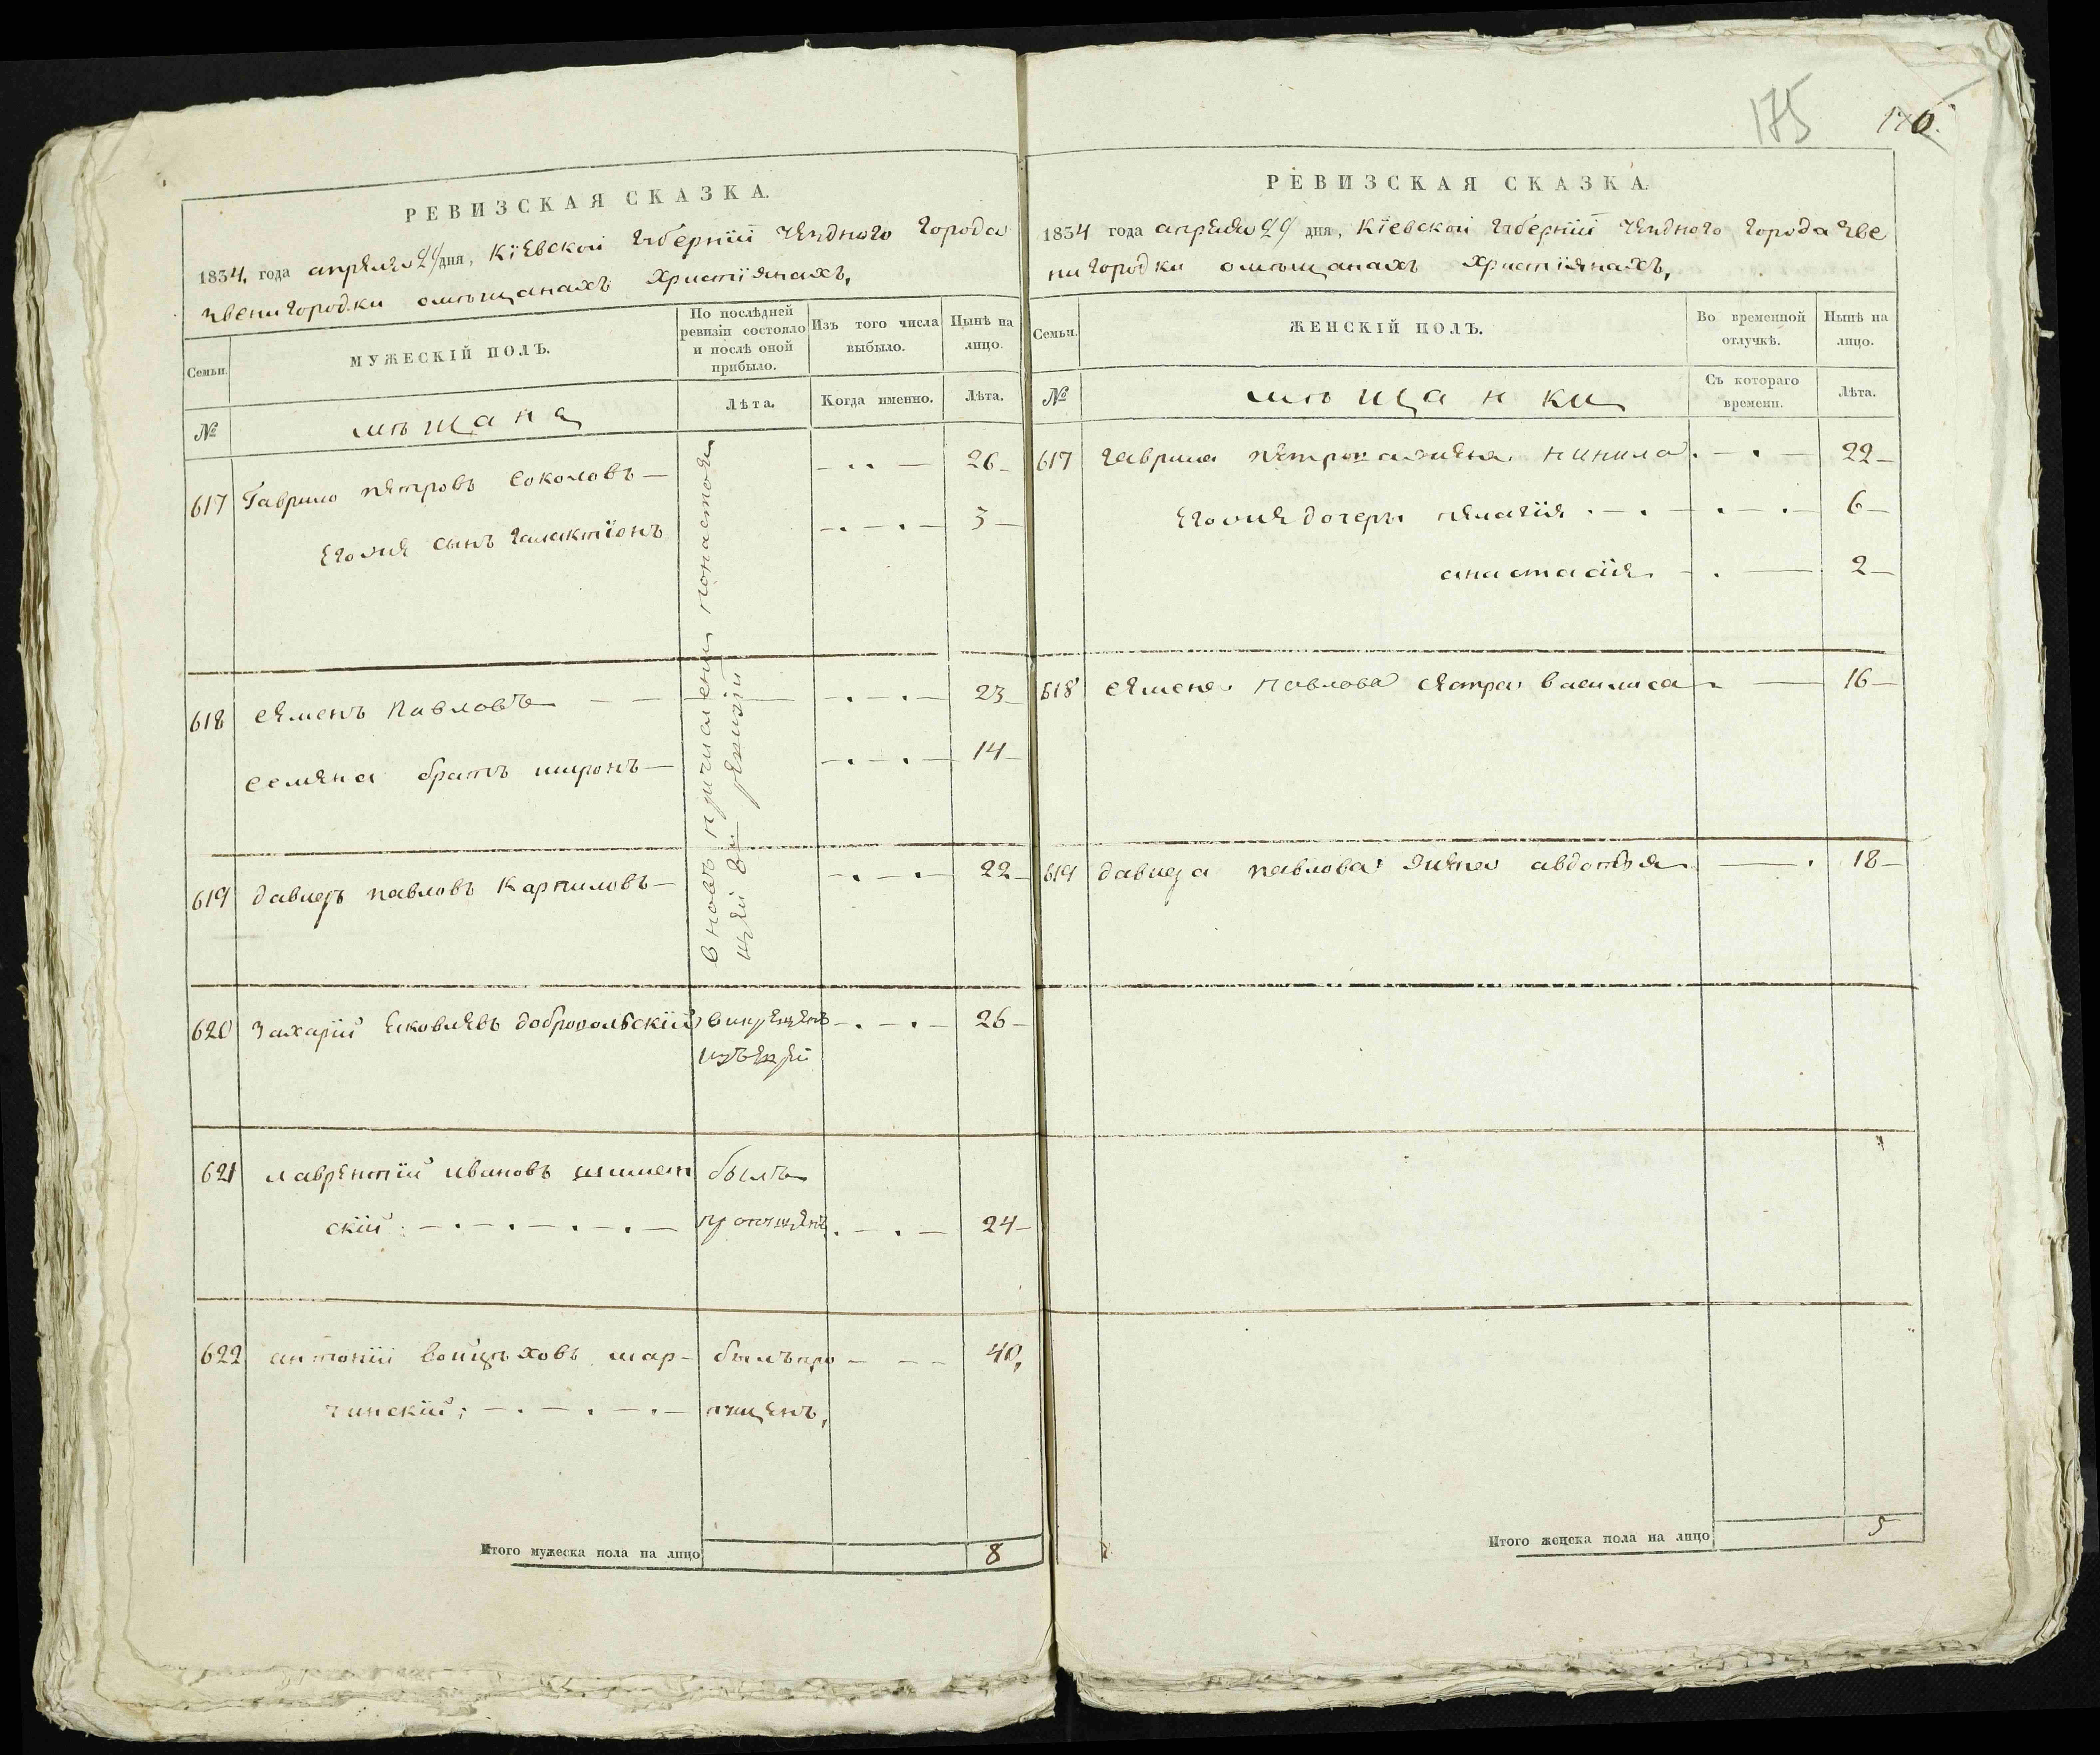 175
176.
РЕВИЗСКАЯ СКАЗКА.
1834, года апреля 29 дня, Кіевской губерніи уезднаго города
Звенигородки омѣщанахъ християнахъ,
Семьи.
МУЖЕСКІЙ ПОЛЪ.
По послѣдней ревизіи состояло и послѣ оной прибыло.
Изъ того числа выбыло.
Нынѣ на лицо.
№
мѣщана
Лѣта.
Когда именно.
Лѣта.
617 Гаврило петровъ Соколовъ — 26
Его же сынъ галактіонъ 5
618 семенъ Павловъ 23
Семена братъ миронъ — 14
619 давидъ павловъ Карпиловъ — 22
вновь причислении понастоя
щей 8й ревизіи
620 Захарій Яковлевъ добровольскій 26
изъ
621 лаврентій ивановъ
скій
былъ
пропущенъ 24
622 антоній войцѣховъ мар-
чинскій; былъ про
пущенъ, 40,
Итого мужеска пола на лицо 8
РЕВИЗСКАЯ СКАЗКА
1834 года апреля 29 дня, Кіевской губерніи уезднаго города Зве
нигородки омѣщанахъ християнахъ,
Семьи.
ЖЕНСКІЙ ПОЛЪ.
Во временной отлучкѣ.
Нынѣ на лицо.
№
мѣщанки
Съ котораго времени.
Лѣта.
617 гаврила петрова жена нинила 22
Его же дочери пелагія 6
анастасія 2
618 семена Павлова сестра василиса 16
619 давида павлова жена авдотья 18
Итого женска пола на лицо 5